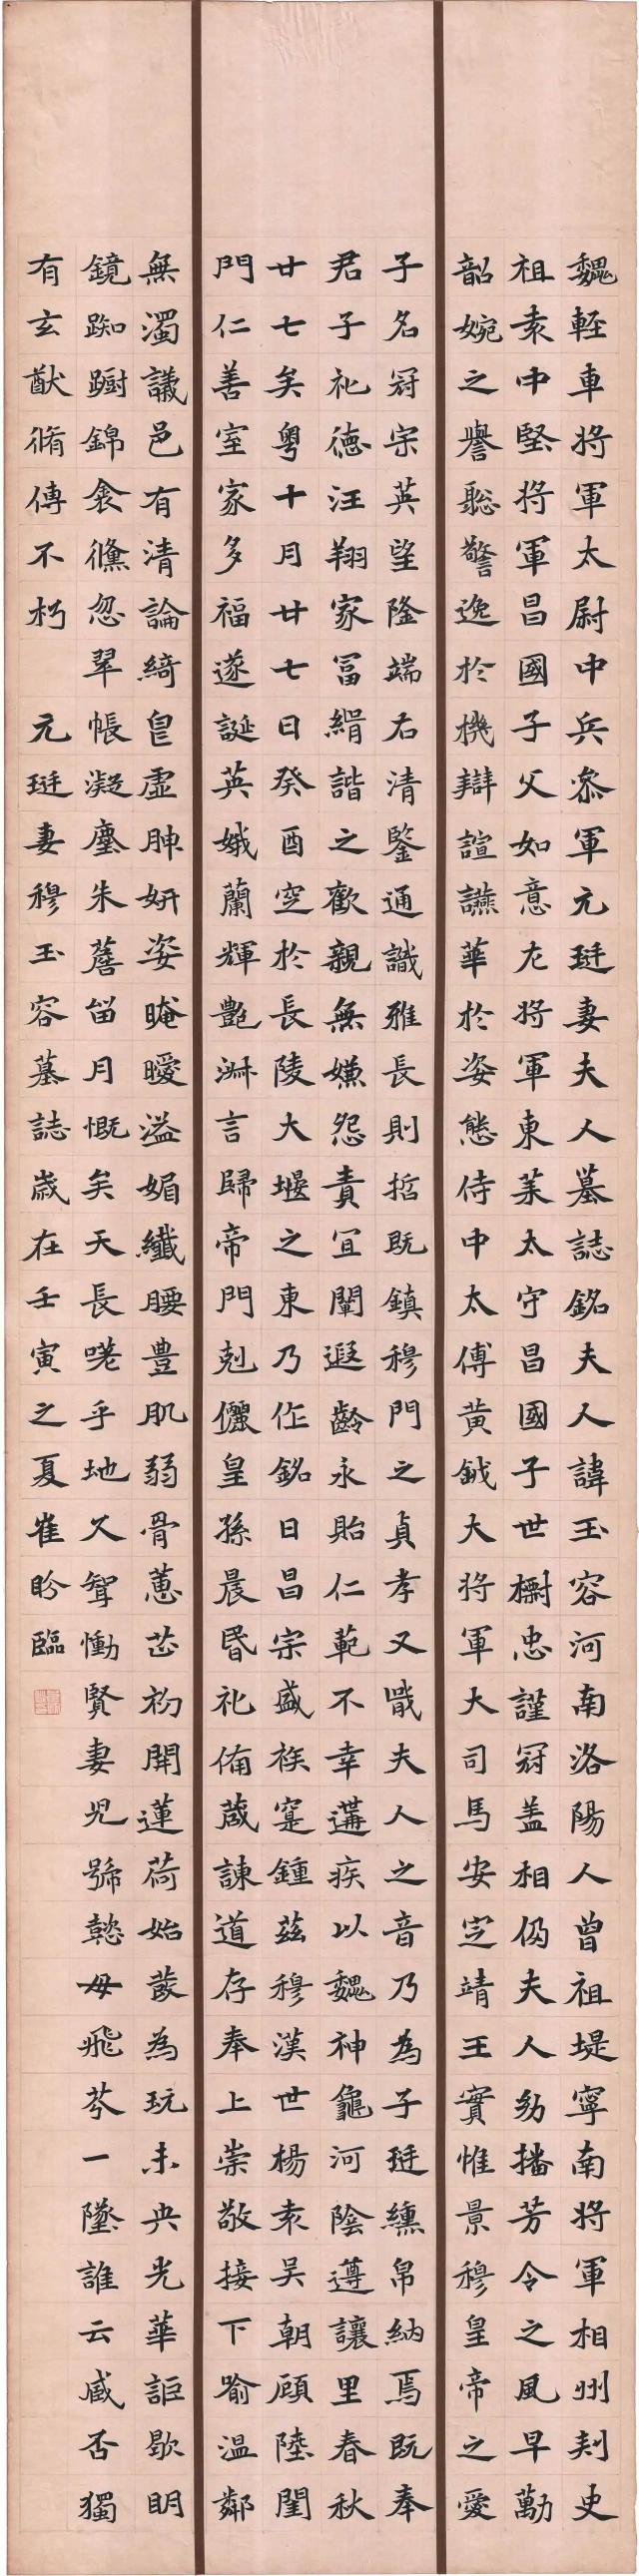 魏輊車將軍太尉中兵叅軍元珽妻夫人墓誌銘夫人諱玉容河南洛陽人曾祖堤寧南將軍相州刾史
祖袁中堅將軍昌國子父如意左將軍東萊太守昌國子世樹忠謹冠盖相仍夫人幼播芳令之風早勵
韶婉之譽聡警逸於機辯諠讌華於姿態侍中太傅黃鉞大將軍大司馬安定靖王實惟景穆皇帝之愛
子名冠宗英望隆端右清鑒通識雅長則哲既鎮穆門之貞孝又戢夫人之音乃為子珽纁帛納焉既奉
君子礼德汪翔家冨緝諧之歡親無嫌怨責宜闡遐齡永貽仁範不幸遘疾以魏神龜河陰遵讓里春秋
廿七矣粵十月廿七日癸酉窆於長陵大堰之東乃作銘曰昌宗盛族寔鍾茲穆漢世楊袁吴朝顧陸閨
門仁善室家多福遂誕英娥蘭輝艶淋言歸帝門剋儷皇孫晨昏礼俻葳諫道存奉上崇敬接下喻温鄰
無濁議邑有清論綺皃虛胂妍姿晻曖溢媚纖腰豊肌弱骨蕙芷初開蓮荷始蕟為玩未央光華詎歇明
鏡踟躕錦衾儵忽翠帳凝塵朱簷留月慨矣天長嗟乎地久聟慟賢妻児號懿母飛芩一墜誰云臧否獨
有玄猷脩傳不朽 元珽妻穆玉容墓誌歲在壬寅之夏崔盼臨